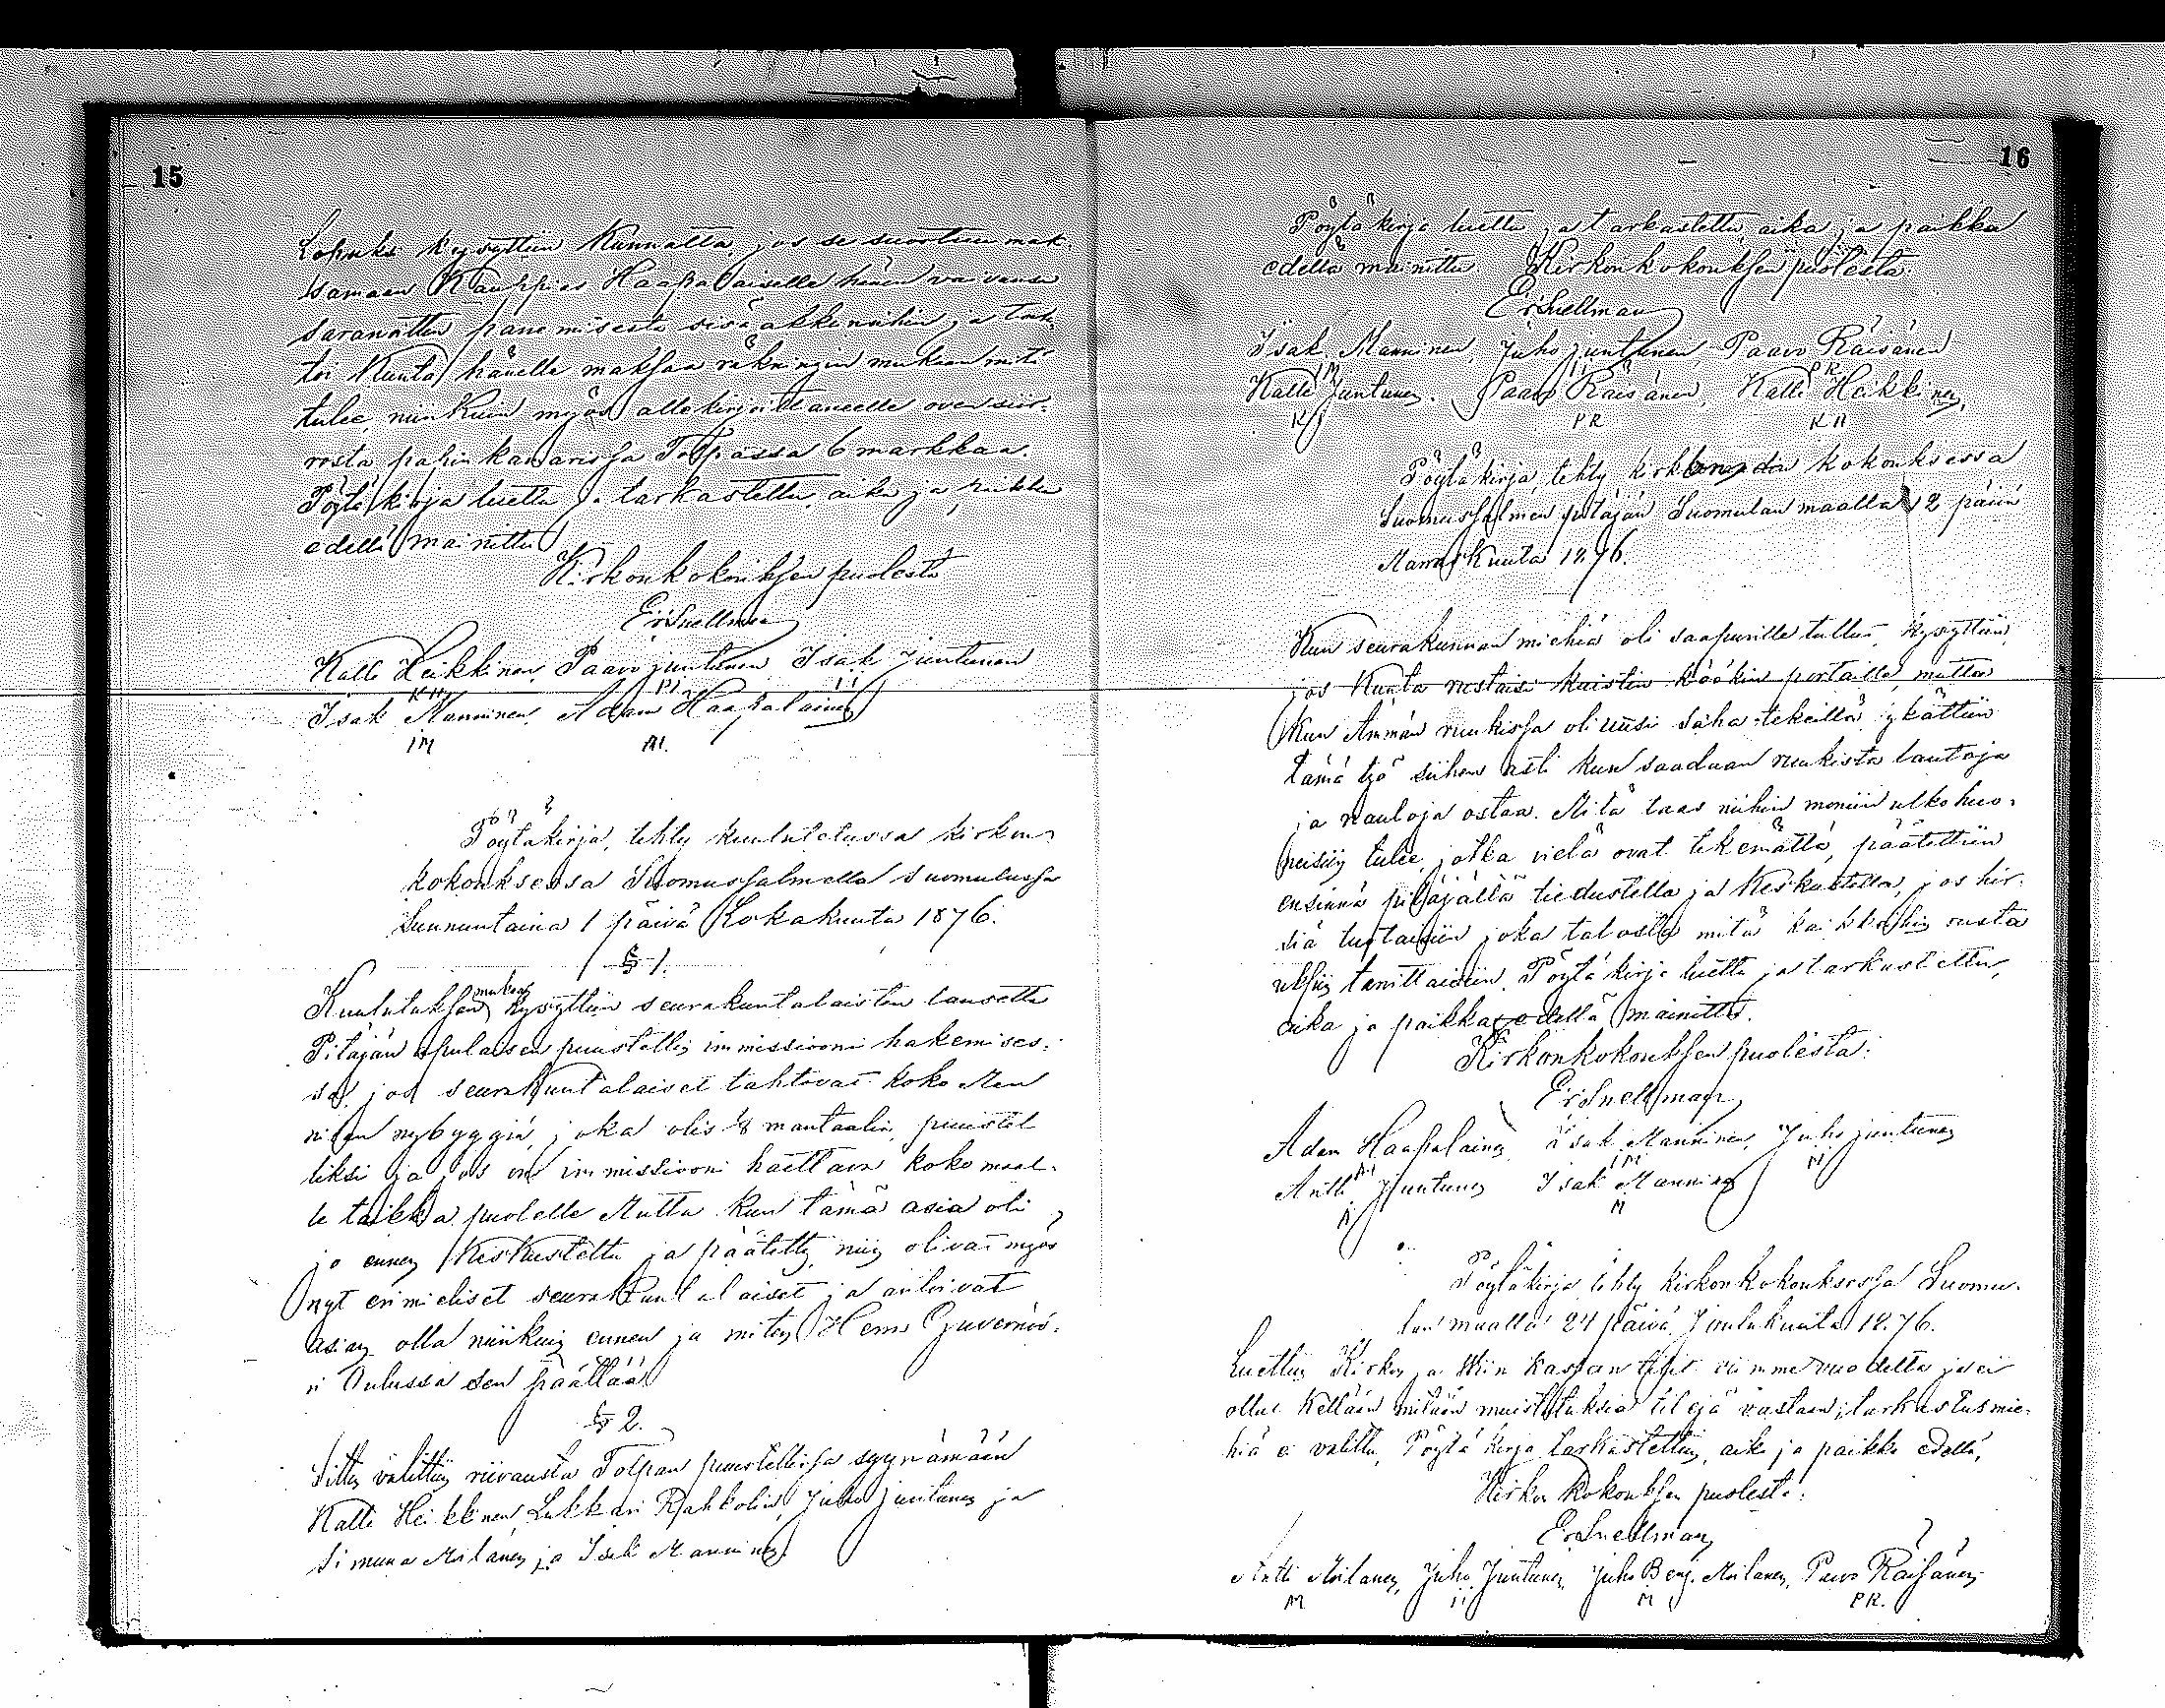 15
Lopuksi kysyttiin Kunnalta, jos se suostuu mak-
samaan Kauppias Haapalaiselle hänen vaivansa
saranoitten panemisesta sisä akkunoihin ja tah-
toi Kunta hänelle maksaa räkningin mukaan mitä
tulee, niin kuin myös allekirjoittaneelle
rosta papin kamarissa Tolpassa 6 markkaa.
Pöytäkirja luettu ja tarkastettu, aika ja paikka
edellä mainittu
Kirkonkokouksen puolesta
Er Snellman
Kalle Heikkinen, Paavo Juntunen Isak Juntunen
KH PJ IJ
Isak Manninen, Adam Haapalainen
IM AH.
Pöytäkirja, tehty kuulutetussa kirkon-
kokouksessa Suomussalmella Suomulassa
Sunnuntaina 1 päivä Lokakuuta 1876.
§ 1.
Kuulutuksen mukaan kysyttiin seurakuntalaisten lausetta
Pitäjän apulaisen puustellin immissiooni hakemises-
sa, jos seurakuntalaiset tahtovat koko
nybyggiä, joka olis 1/8 mantaalia, puustel-
liksi ja jos on immissiooni haettava koko maal-
le taikka puolelle Mutta kun tämä asia oli
jo ennen keskusteltu ja päätetty, niin olivat myös
nyt erimieliset seurakuntalaiset ja antoivat
asian olla niinkuin ennen ja miten Herra Guvernöö-
ri Oulussa sen päättää
§ 2.
Sitten valittiin Tolpan puustellissa syynämään
Kalle Heikkinen, Lukkari Rahkolin, Juho Juntunen ja
Simuna Moilanen ja Isak Manninen.
16
Pöytäkirja luettu ja tarkastettu aika ja paikka
edellä mainittu Kirkonkokouksen puolesta:
Er Snellman
Isak Manninen, Juho Juntunen, Paavo Räisänen
IM JJ PR
Kalle Juntunen. Paavo Räisänen, Kalle Heikkinen,
KJ PR KH
Pöytäkirja, tehty kokouksessa
Suomussalmen pitäjän Suomulan maalla 12 päivä
Marraskuuta 1876.
Kun seurakunnan miehiä oli saapuville tullut, kysyttiin,
jos Kunta rustaisi kuistin köökin portaille, mutta
kun Ämmän ruukissa oli uusi saha tekeillä lykättiin
tämä työ siihen asti kun saadaan ruukista lautoja
ja nauloja ostaa. Mitä taas niihin moniin ulkohuo-
neisiin tulee, jotka vielä ovat tekemättä, päätettiin
ensinnä pitäjällä tiedustella ja keskustella, jos hir-
siä tuotaisiin joka talosta mitä kaikkihin rusta-
uksiin tarvittaisiin. Pöytäkirja luettu ja tarkastettu,
aika ja paikka edellä mainittu.
Kirkonkokouksen puolesta:
Er Snellman
Adam Haapalainen Isak Manninen, Juho Juntunen
AH IM JJ
Antti Juntunen Isak Manninen
AJ M
Pöytäkirja tehty kirkonkokouksessa Suomu-
lan maalla 24 päivä Joulukuuta 1876.
Luettiin Kirkon ja Wiin kassan tilit viimme vuodelta ja ei
ollut kellään mitään muistutuksia tilejä vastaan; tarkastusmie-
hiä ei valittu, Pöytäkirja tarkastettiin, aika ja paikka edellä,
Kirkon kokouksen puolesta:
Er Snellman
Antti Moilanen, Juho Juntunen, Juho Benj. Moilanen, Paavo Räisänen
AM JJ M PR.